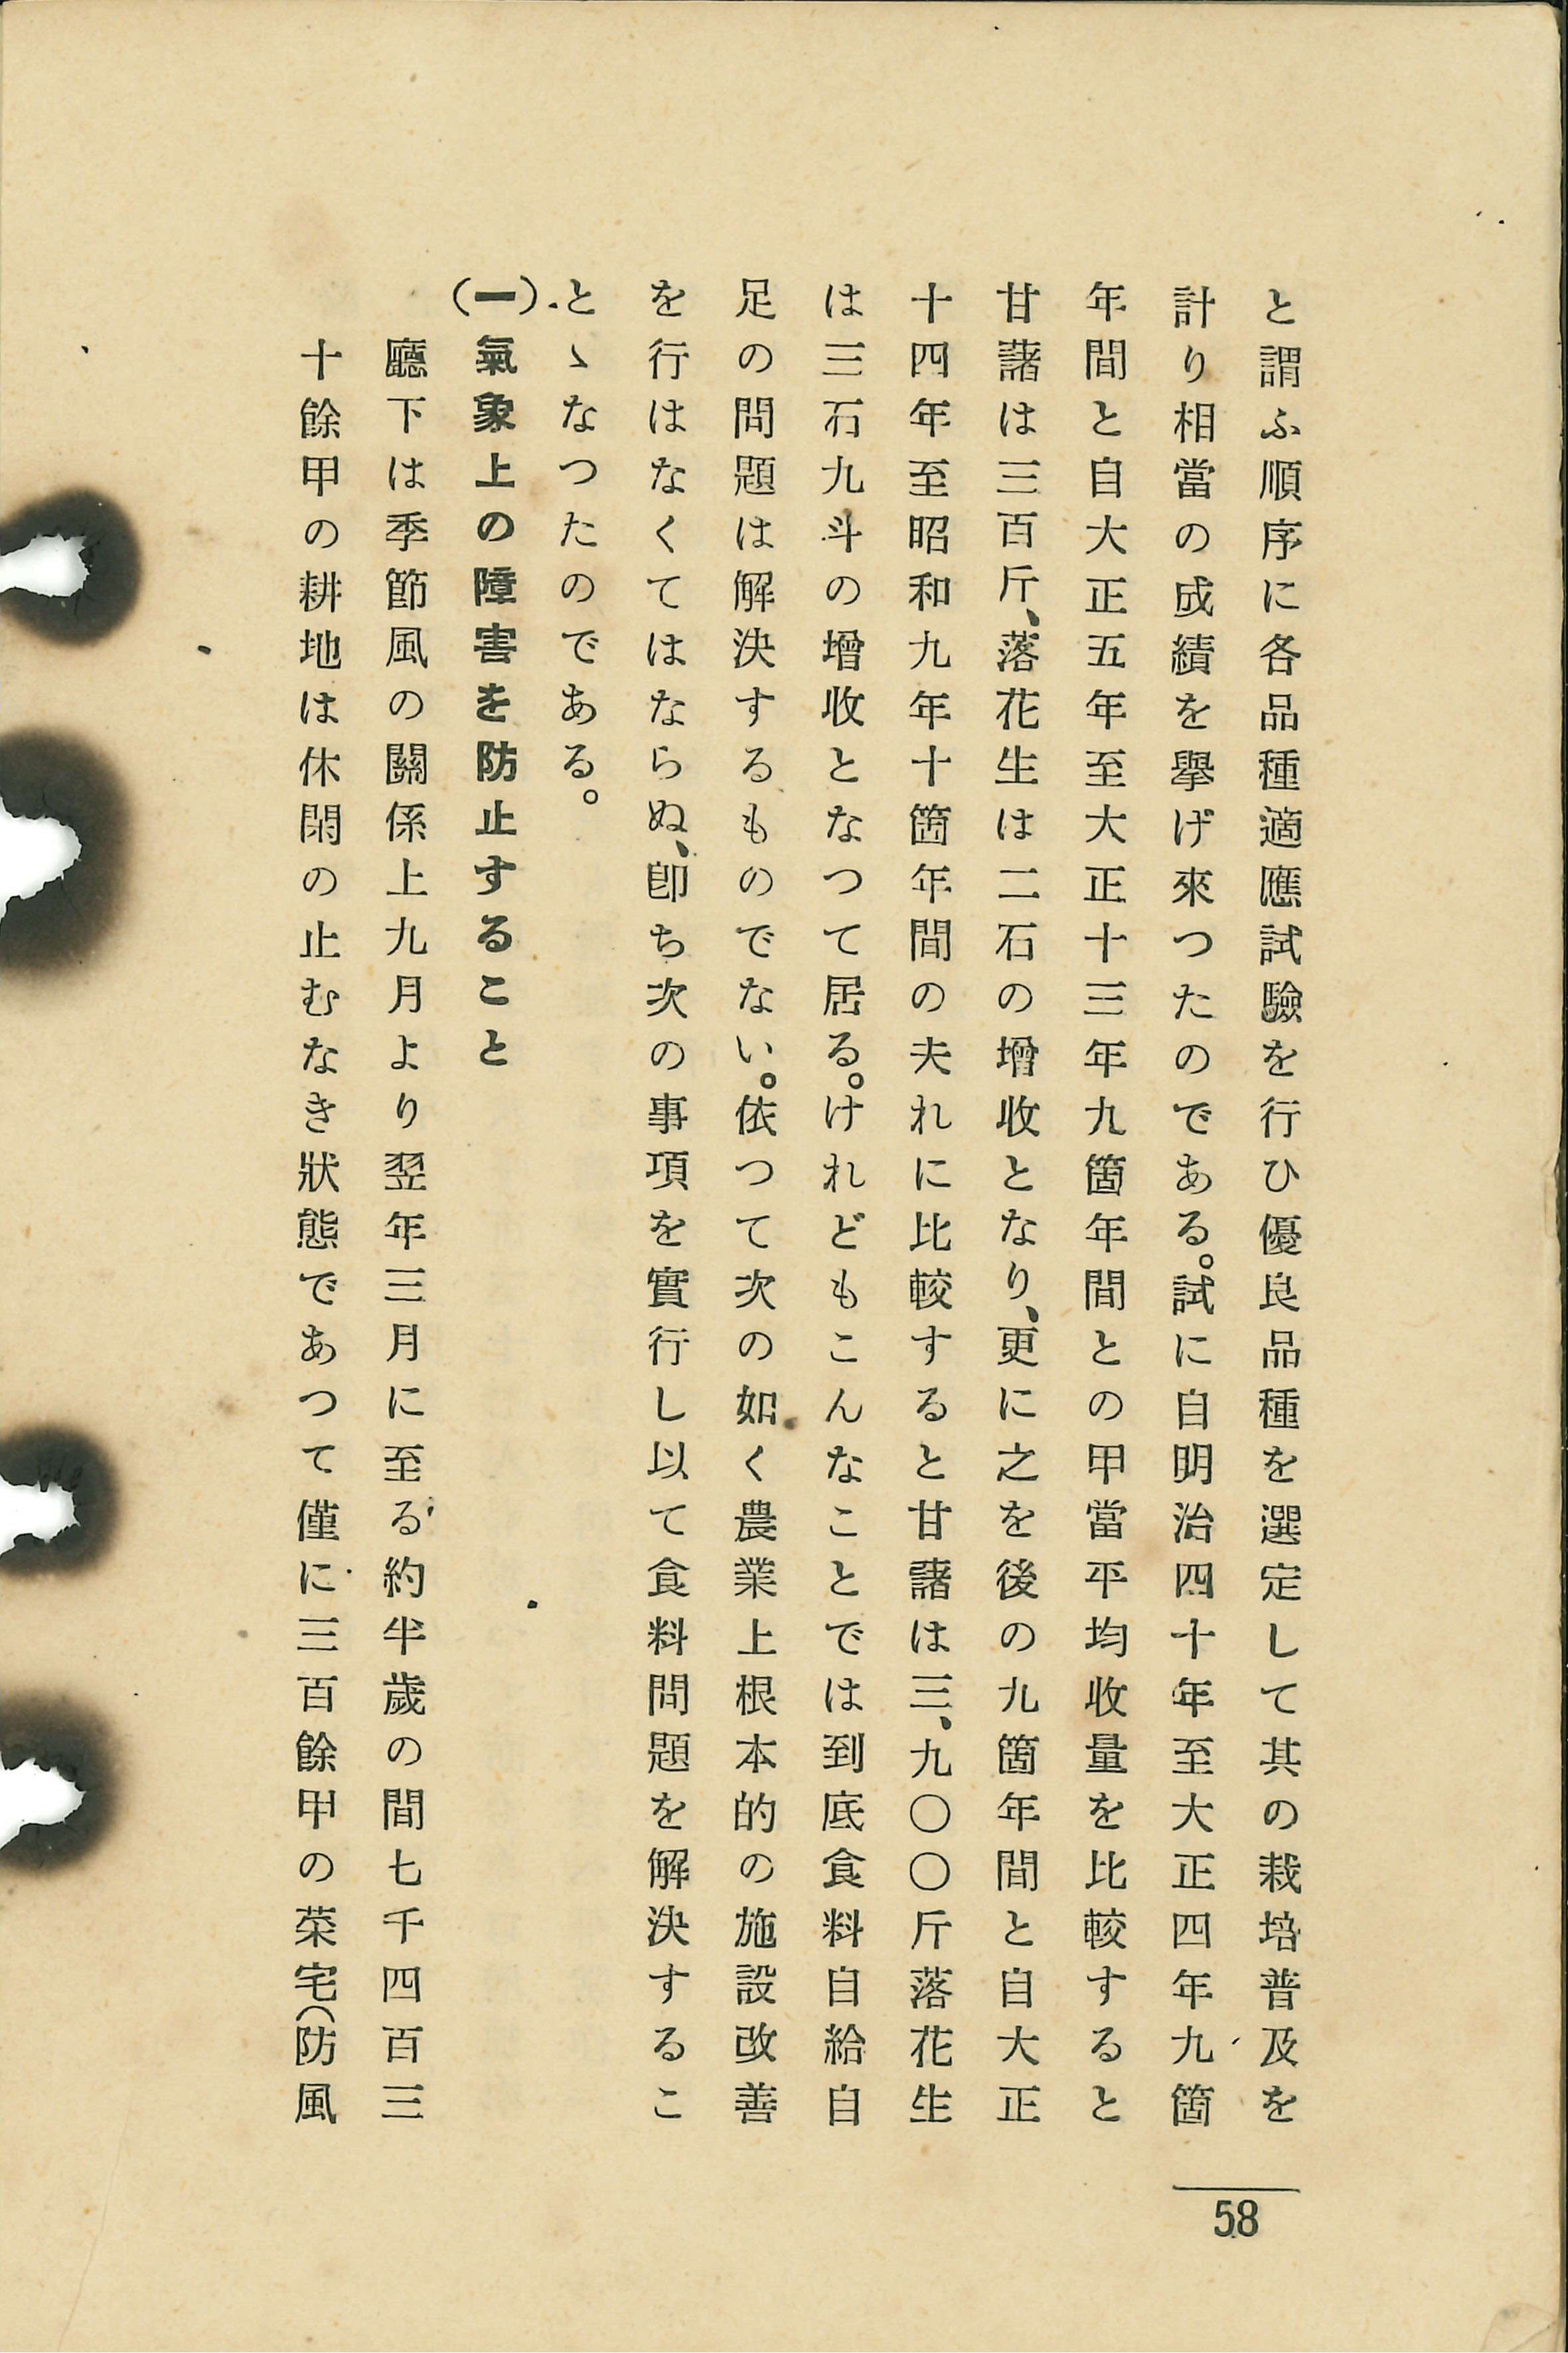 と謂ふ順序に各品種適應試驗を行ひ優良品種を選定して其の栽培普及を
計り相當の成績を擧げ來つたのである。試に自明治四十年至大正四年九箇
年間と自大正五年至大正十三年九箇年間との甲當平均收量を比較すると
甘藷は三百斤、落花生は二石の增收となり、更に之を後の九箇年間と自大正
十四年至昭和九年十箇年間の夫れに比較すると甘藷は三、九〇〇斤落花生
は三石九斗の增收となつて居る。けれどもこんなことでは到底食料自給自
足の問題は解決するものでない。依つて次の如く農業上根本的の施設改善
を行はなくてはならぬ、卽ち次の事項を實行し以て食料問題を解決するこ
とゝなつたのである。
(一)氣象上の障害を防止すること
廳下は季節風の關係上九月より翌年三月に至る約半歲の間七千四百三
十餘甲の耕地は休閑の止むなき狀態であつて僅に三百餘甲の菜宅(防風
58